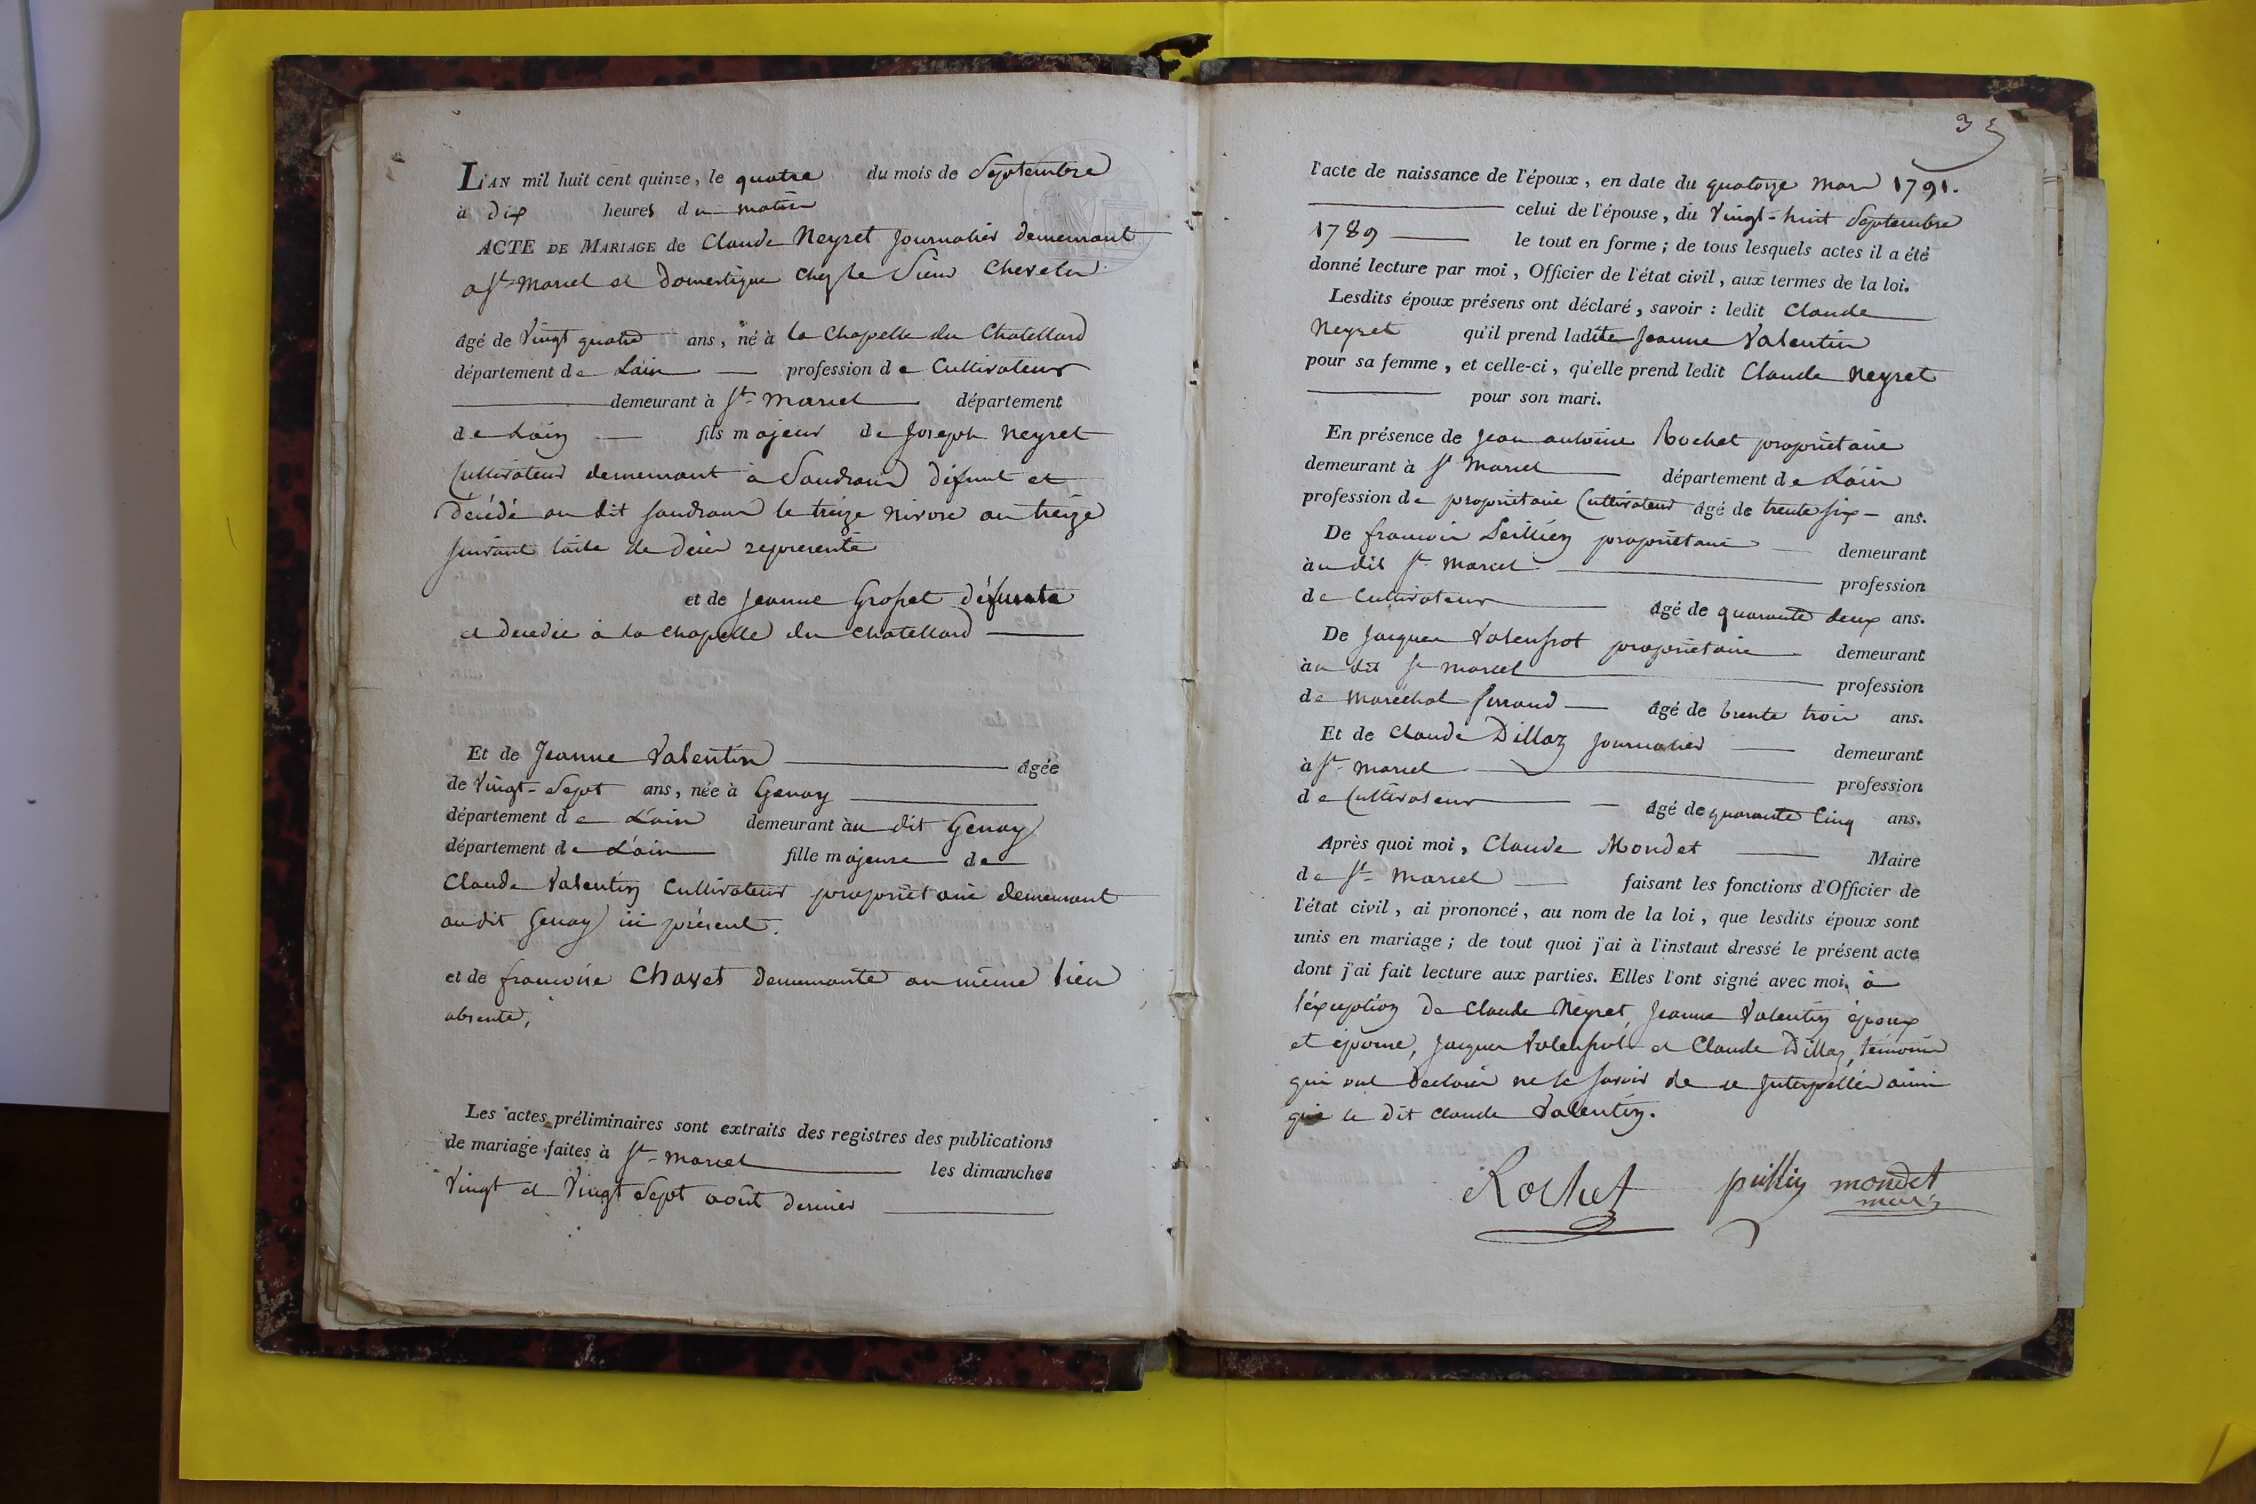 L'AN mil huit cent quinze, le quatre du mois de Septembre
à dix heures du matin
ACTE DE MARIAGE de Claude Neyret Journalier demeurant
a St. Marcel et domestique chez le Sieur
âgé de vingt quatre ans, né à la Chapelle du Chatellard
département de L'ain profession de Cultivateur
demeurant à St. Marcel département
de L'ain fils majeur de Joseph Neyret
Cultivateur demeurant à Sandrans défunt et
décédé au dit Sandrans le treize nivose an treize
suivant l'acte de décès représenté
et de Jeanne Grosset défunte
et décédée à la Chapelle du Chatellard
Et de Jeanne Valentin âgée
de vingt-sept ans, née à Genay
département de L'ain demeurant au dit Genay
département de L'ain fille majeure de
Claude Valentin Cultivateur propriétaire demeurant
au dit Genay ici présent.
et de françoise Chavet demeurante au même lieu
absente,
Les actes préliminaires sont extraits des registres des publications
de mariage faites à St. Marcel les dimanches
vingt et vingt sept août dernier
35
l'acte de naissance de l'époux, en date du quatorze mars 1791.
celui de l'épouse, du vingt-huit Septembre
1789 le tout en forme ; de tous lesquels actes il a été
donné lecture par moi, Officier de l'état civil, aux termes de la loi.
Lesdits époux présens ont déclaré, savoir : ledit Claude
Neyret qu'il prend ladite Jeanne Valentin
pour sa femme, et celle-ci, qu'elle prend ledit Claude Neyret
pour son mari.
En présence de Jean antoine Rochet propriétaire
demeurant à St Marcel département de L'ain
profession de propriétaire Cultivateur âgé de trente six ans.
De françois propriétaire demeurant
au dit St Marcel profession
de Cultivateur âgé de quarante deux ans.
De Jacques propriétaire demeurant
au dit St Marcel profession
de Maréchal ferrand âgé de trente trois ans.
Et de Claude Dillaz Journalier demeurant
à St. Marcel profession
de Cultivateur âgé de quarante Cinq ans.
Après quoi moi, Claude Mondet Maire
de St. Marcel faisant les fonctions d'Officier de
l'état civil, ai prononcé, au nom de la loi, que lesdits époux sont
unis en mariage ; de tout quoi j'ai à l'instaut dressé le présent acte
dont j'ai fait lecture aux parties. Elles l'ont signé avec moi, à
l'exception de Claude Neyret, Jeanne Valentin époux
et épouse, Jacques et Claude Dillaz, témoins
qui ont déclaré ne le savoir de ce Interpellés ainsi
que le dit Claude Valentin.
Rochet mondet
maire